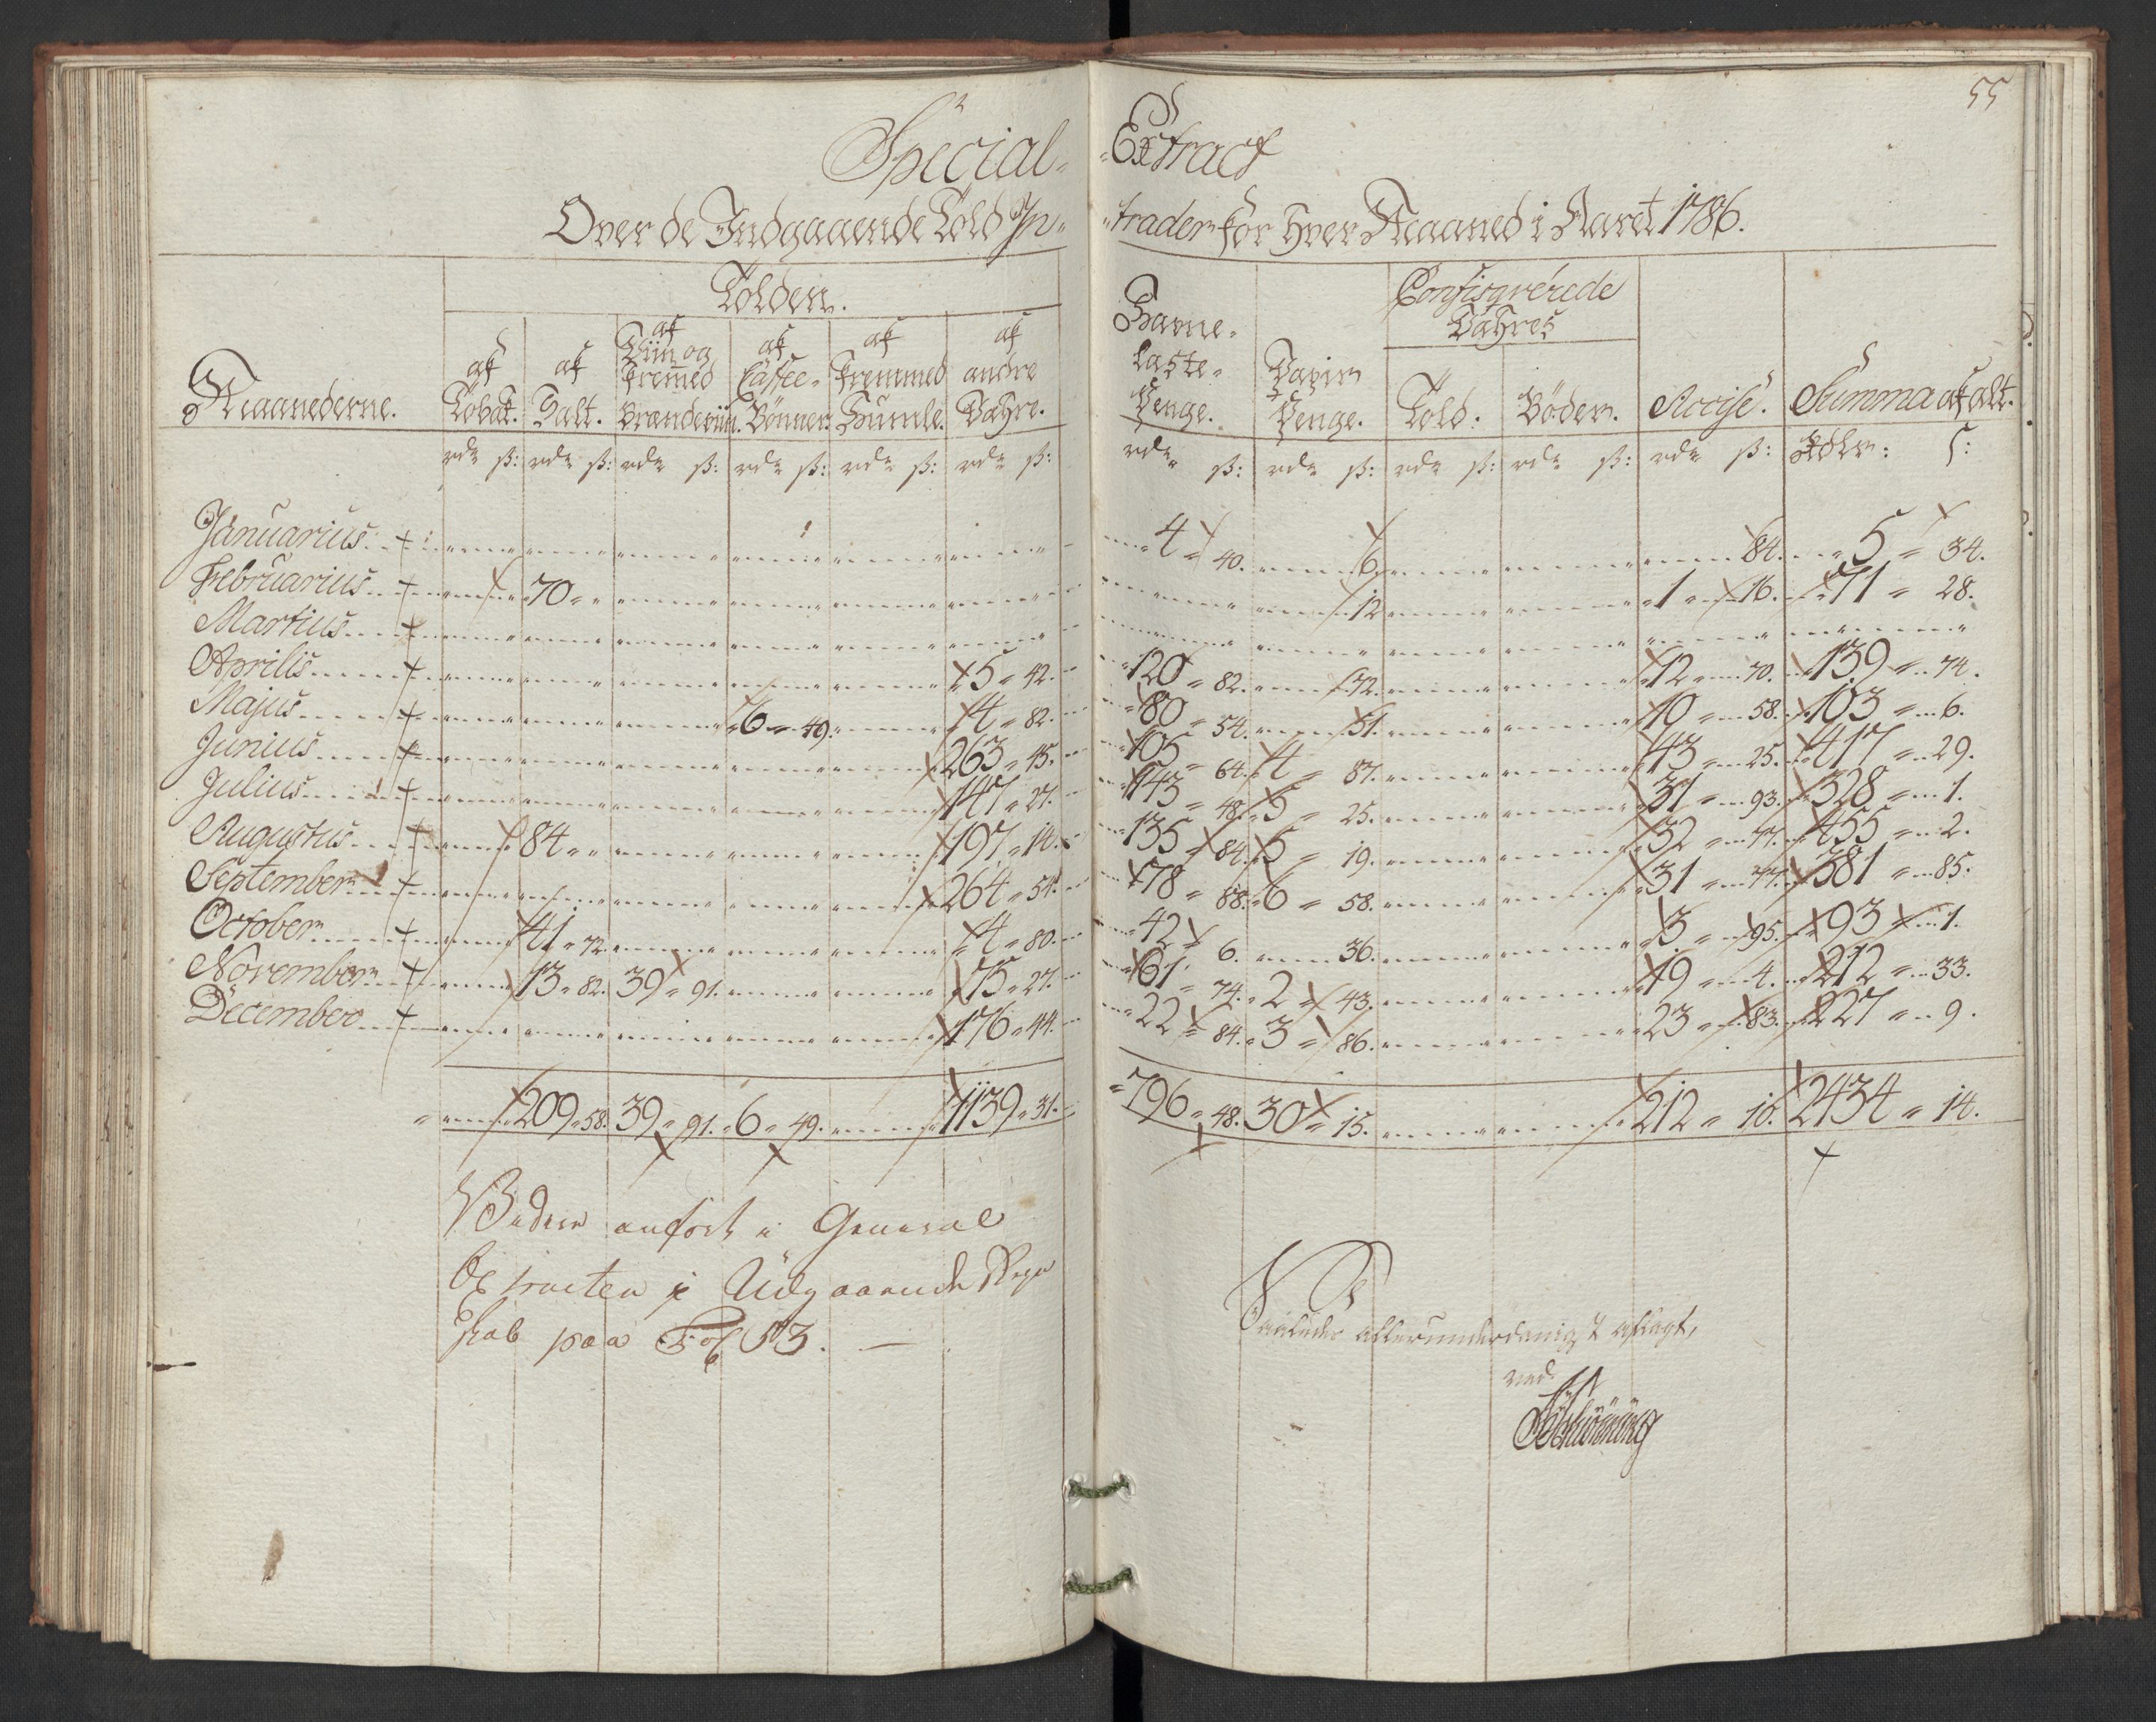 55
Special- -Extract
Over de Indgaaende Told In- -trader for Hver Maaned i Aaret 1786.
Tolden.
Confisqverede
Vahres
Maanederne.
af Tobak. af Salt. af Viin og Fremmed Brændeviin. af Caffee-Bönner. af Fremmed Humle. af andre Vahre. Havne-Laste-Penge. Papir Penge. Told. Böder. Accise. Summa af alt.
rdr ß: rdr ß: rdr ß: rdr ß: rdr ß: rdr ß: rdr ß: rdr ß: rdr ß: rdr ß: rdr ß: Rdlr: ß:
Januarius 4 = 40. 6. 84. 5 = 34.
Februarius 70 = 12 1 = 16. 71 = 28.
Martius
Aprilis 5 = 42. 120 = 82. 72. 12 = 70. 139 = 74.
Majus 6 = 49. 4 = 82. 80 = 54. 51. 10 = 58. 103 = 6.
Junius 263 = 45. 105 = 64. 4 = 87. 43 = 25. 417 = 29.
Julius 147 = 27. 143 = 48. 5 = 25. 31 = 93. 328 = 1.
Augustus 84 = 197 = 14. 135 = 84. 5 = 19. 32 = 77. 455 = 2.
September 264 = 54. 78 = 88. 6 = 58. 31 = 77. 381 = 85.
October 41 = 72. 4 = 80. 42 = 6. 36. 3 = 95. 93 = 1.
November 13 = 82. 39 = 91. 75 = 27. 61 = 74. 2 = 43. 19 = 4. 212 = 33.
December 176 = 44. 22 = 84. 3 = 86. 23 = 83. 227 = 9.
209 = 58. 39 = 91. 6 = 49. 1139 = 31. 796 = 48. 30 = 15. 212 = 10. 2434 = 14.
anfört i General
Extracten i Udgaaende Regn
skab paa Fol 53.
Saaledes allerunderdanigst aflagt,
ved